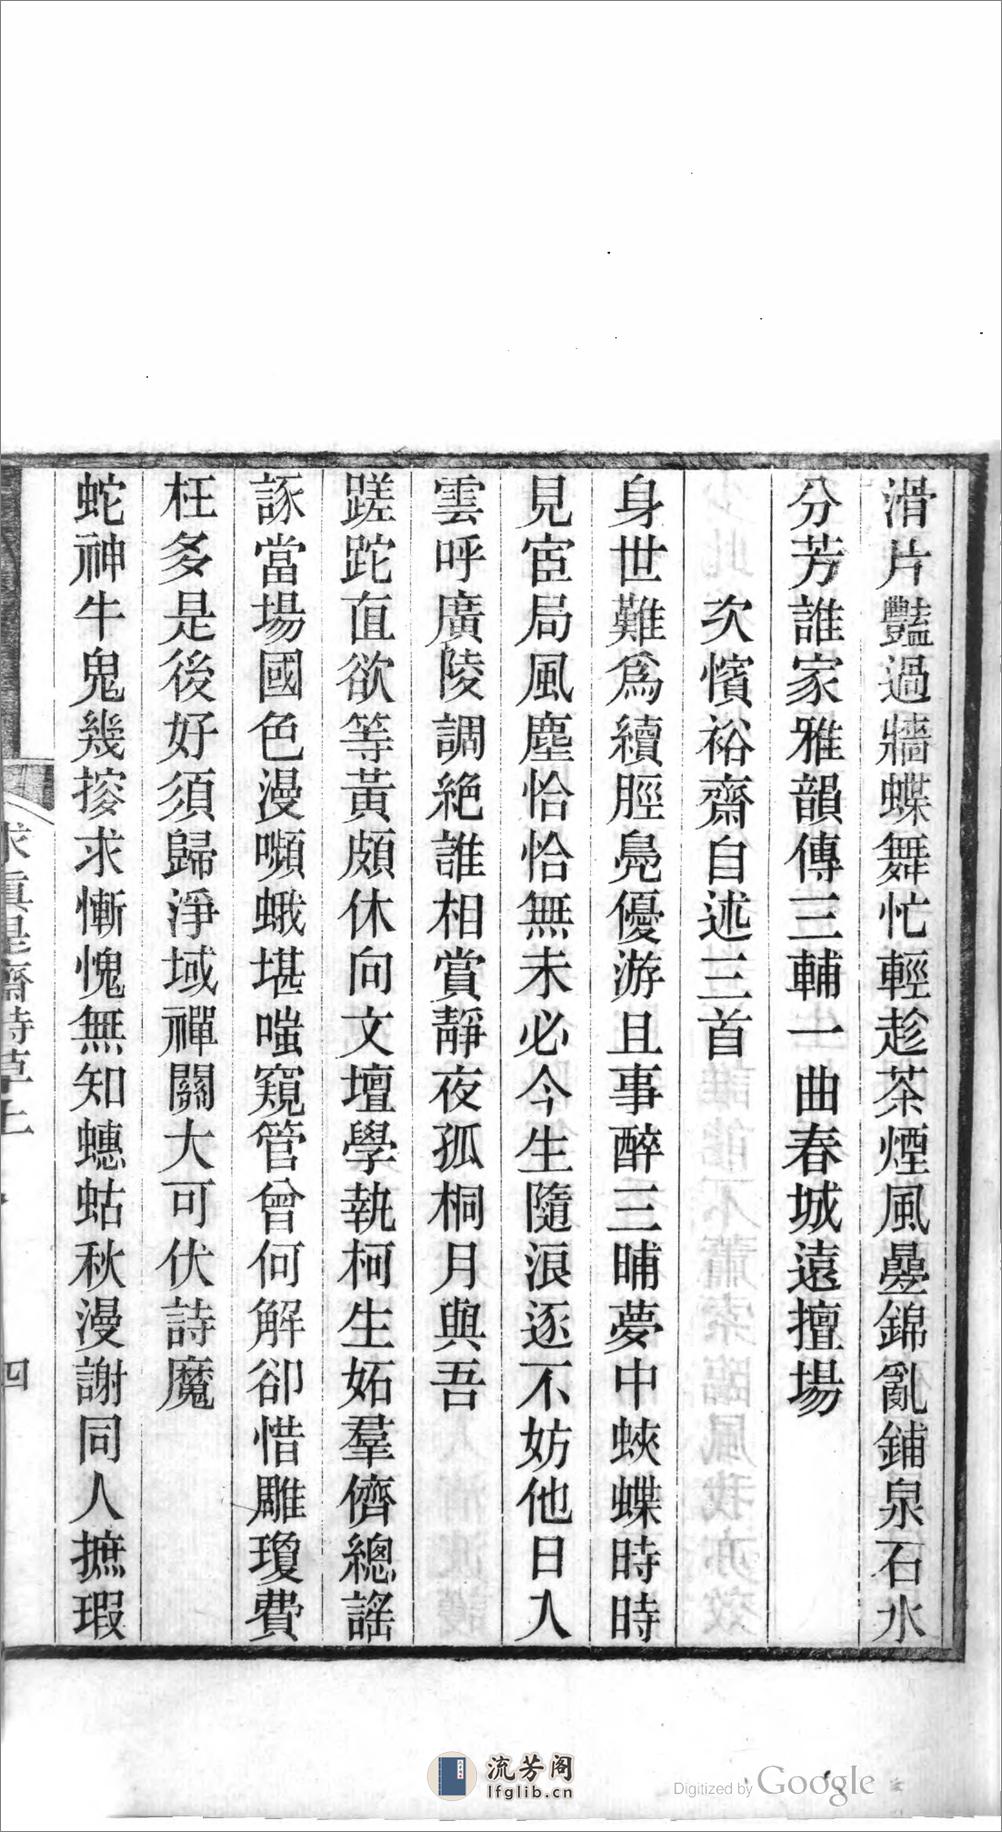 滑片豔過牆蝶舞忙輕趁茶煙風曡錦亂鋪泉石水
分芳誰家雅韻傳三輔一曲春城遠擅場
次懷裕齋自述三首
身世難爲續脛鳧優游且事醉三晡夢中蛺蝶時時
見宦局風塵恰恰無未必今生隨浪逐不妨他日入
雲呼廣陵調絶誰相賞靜夜孤桐月與吾
蹉跎直欲等黃頗休向文壇學執柯生妬羣儕總謠
諑當場國色漫嚬蛾堪嗤窺管曾何解卻惜雕瓊費
枉多是後好須歸淨域禪關大可伏詩魔
蛇神牛鬼幾搜求慚愧無知蟪蛄秋漫謝同人摭瑕
求真是齋詩草上
四
流芳阁
lfglib.cn
Digitized by Google